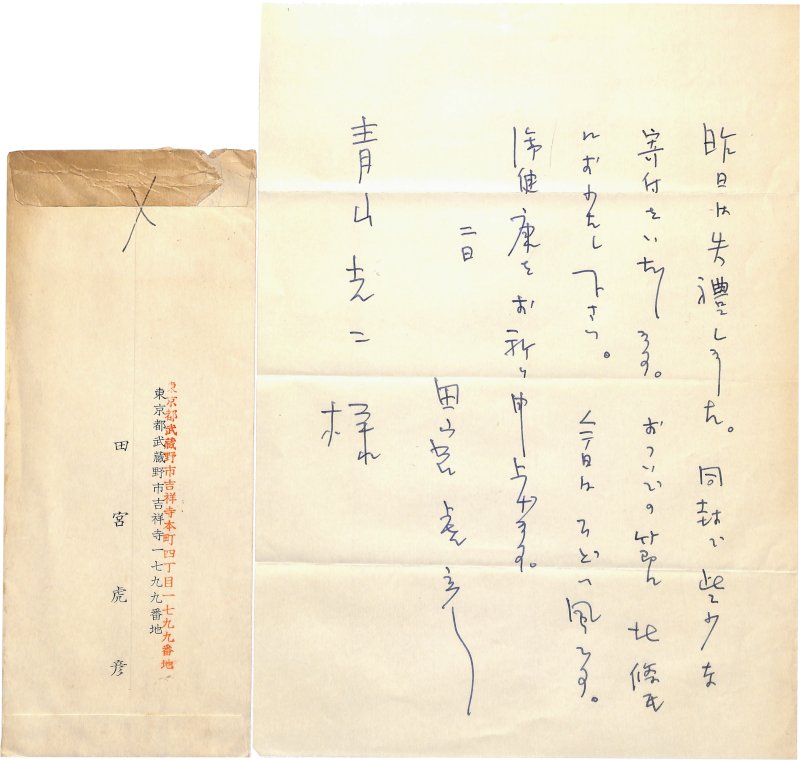 昨日は失禮しました。同封で些少な
寄付をいたします。おついでの節に北條氏
におわたし下さい。今日はひどい風です。
御健康をお祈り申し上げます。
二日
田宮虎彦
青山光二 様
〆
東京都武蔵野市吉祥寺本町四丁目一七九九番地
東京都武蔵野市吉祥寺一七九九番地
田宮虎彦